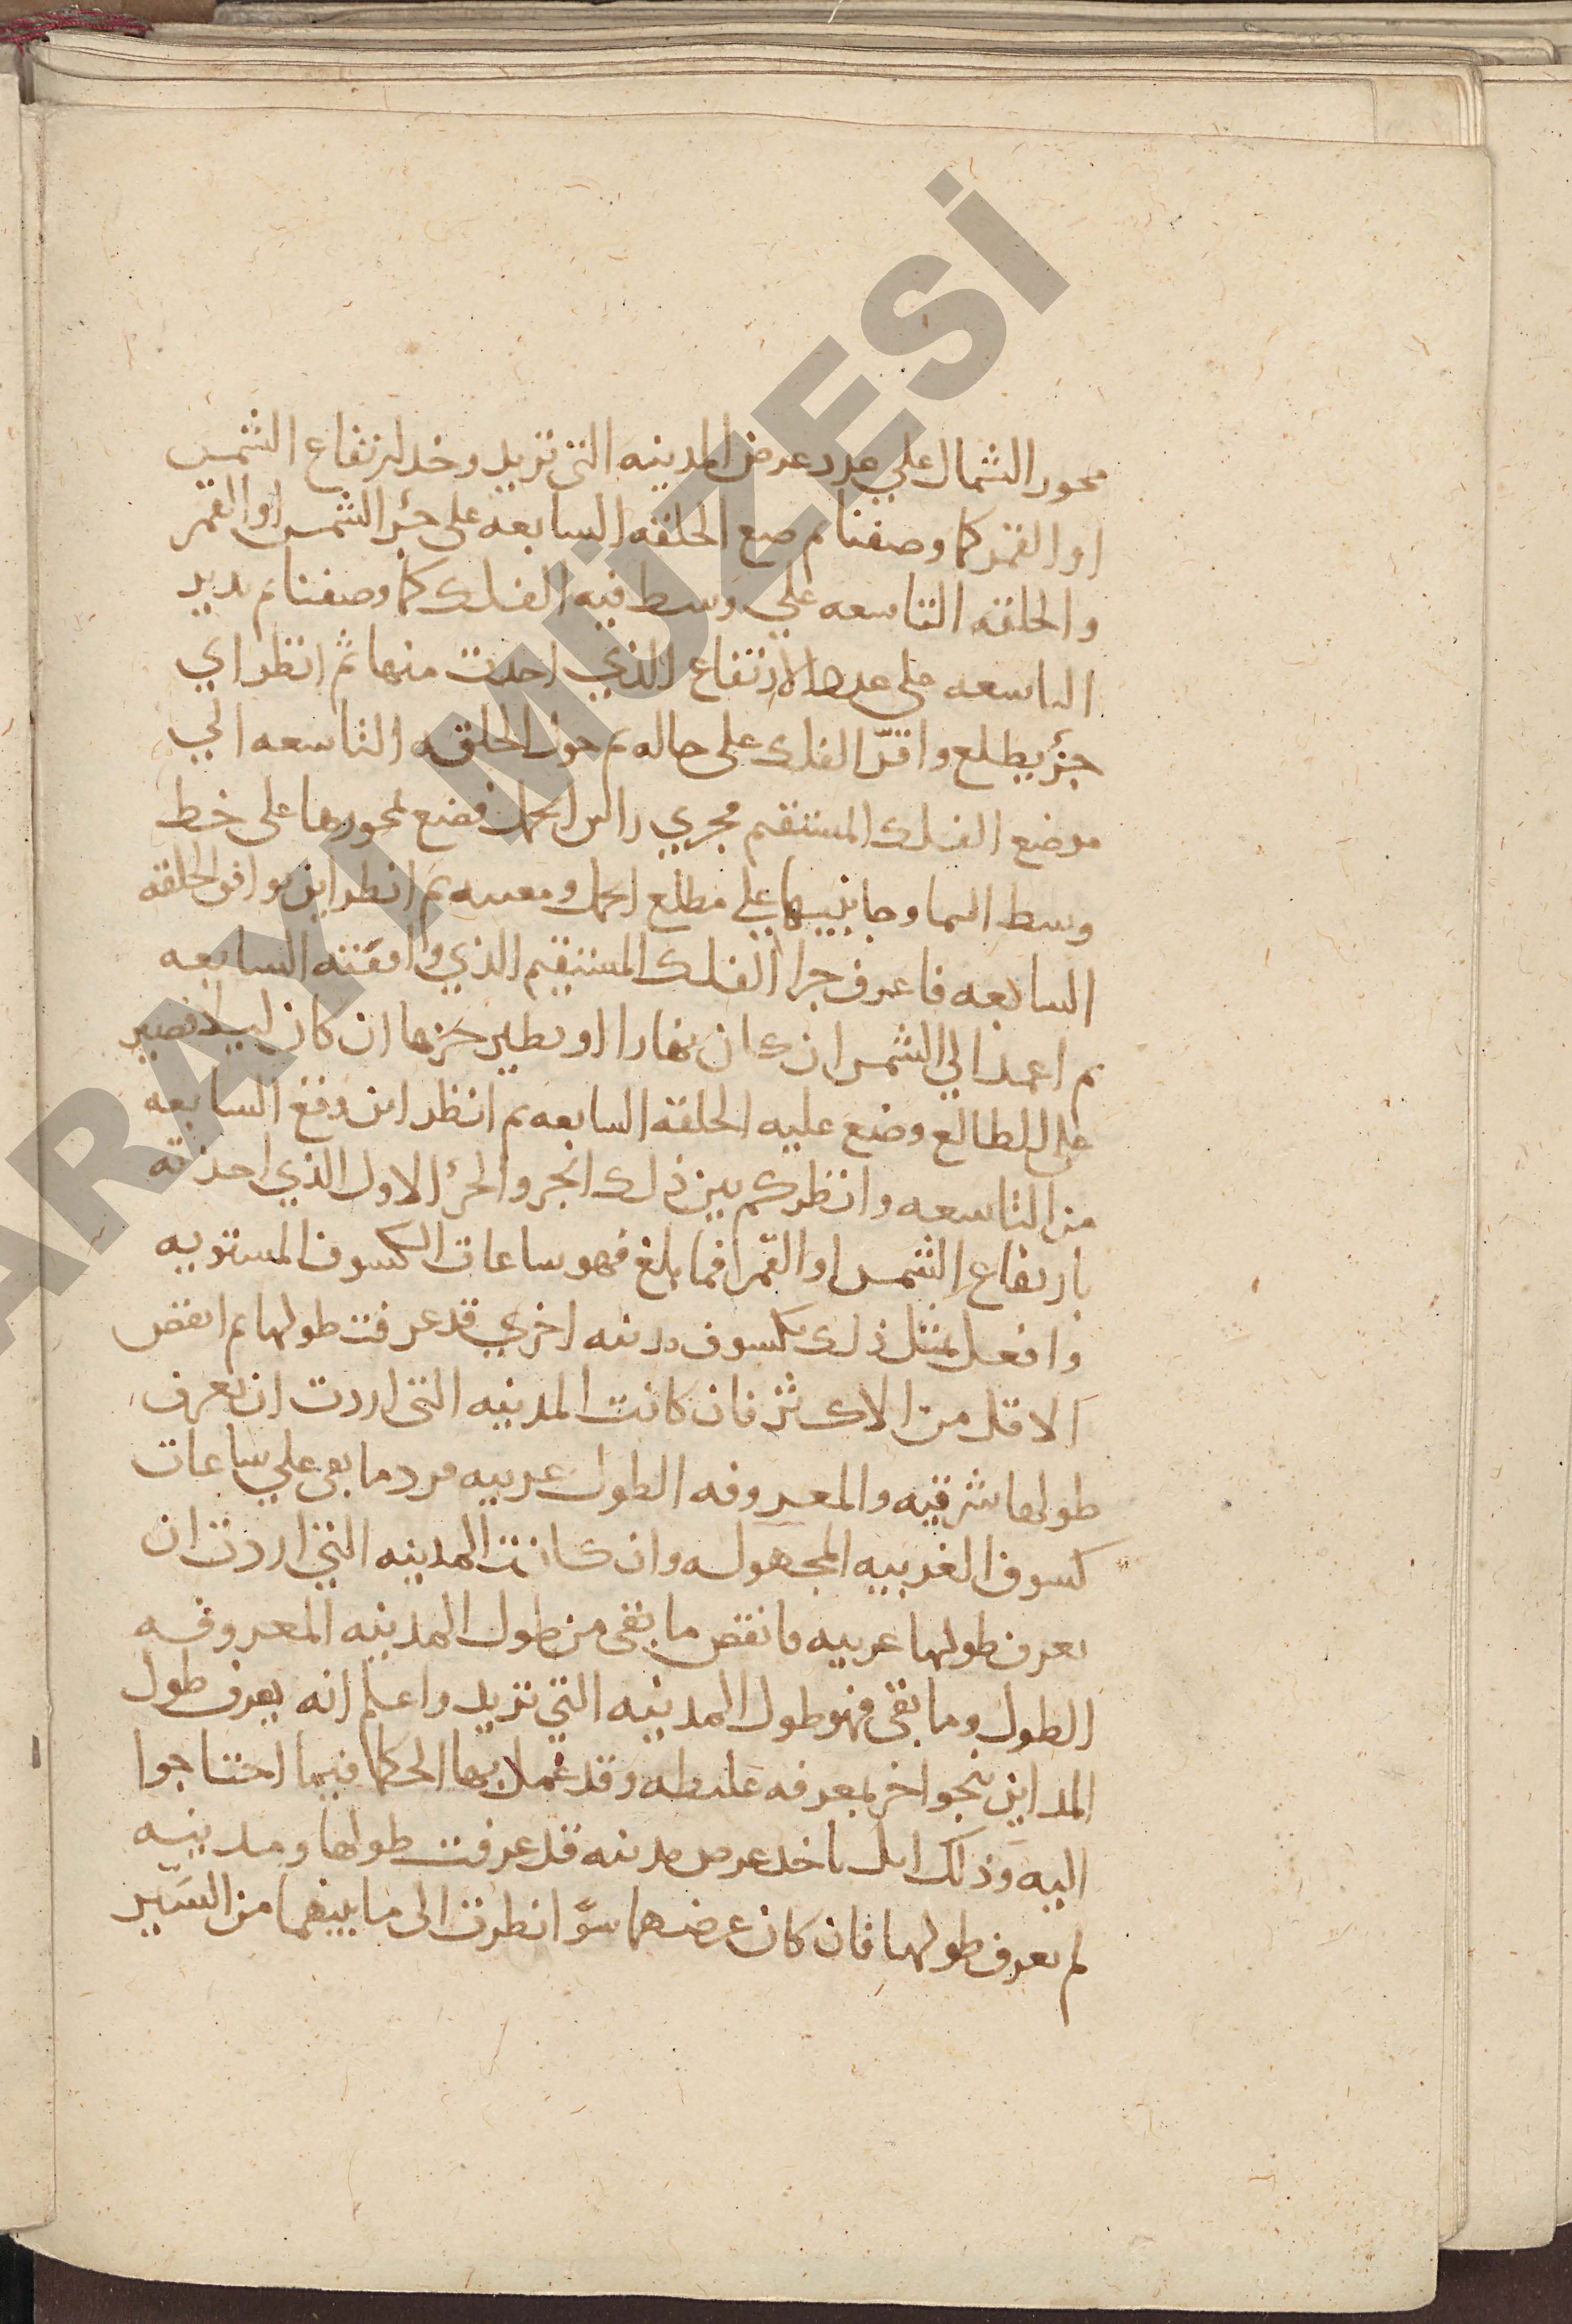 محور الشمال علي عدد عرض المدينه التي تريد وخد ارتفاع الشمس
او القمر كما وصفنا ثم ضع الحلقه السابعه على جزء الشمس او القمر
والحلقه التاسعه علي وسط فيه الفلك كما وصفنا ثم تدير
التاسعه على عدد الارتفاع الذي احدت منها ثم انظر اي
جزء يطلع واقرّ الفلك على حاله ثم حول الحلقه التاسعه الي
موضع الفلك المستقيم مجري راس الحمل فضع محورها على خط
وسط السما وجانبيها علي مطلع الحمل ومغيبه ثم انظر اين توافق الحلقه
السابعه فاعرف جزا الفلك المستقيم الذي وافقته السابعه
ثم اعمد الي الشمس ان كان نهارا او نطير جزها ان كان ليلا فصير
على الطالع وضع عليه الحلقه السابعه ثم انظر اين وقع السابعه
من التاسعه وانظر كم بين ذلك الجز والجزء الاول الذي احذته
بارتفاع الشمس او القمر فما بلغ فهو ساعات الكسوف المستويه
وافعل بمثل ذلك بكسوف مدينه اخري قد عرفت طولها ثم انقص
الاقل من الاكثر فان كانت المدينه التي اردت ان تعرف
طولها شرقيه والمعروفه الطول غربيه فرد ما بقى علي ساعات
كسوف الغربيه المجهوله وان كانت المدينه التي اردت ان
تعرف طولها غربيه فانقص ما بقى من طول المدينه المعروفه
الطول وما بقى فهو طول المدينه التي تريد واعلم انه يعرف طول
المداين بنحو اخر بمعرفه غليظه وقد عمل بها الحكما فيما احتاجوا
اليه وذلك انك تاخد عرض مدينه قد عرفت طولها ومدينه
لم تعرف طولها فان كان عرضهما سوّا نظرت الى ما بينهما من السَير
ARAYI MÜZESİ